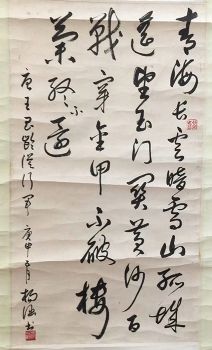 青海长云暗雪山孤城
遥望玉门关黄沙百
战穿金甲不破楼
兰终不还
唐王昌龄从军行 庚申 月 杨 书